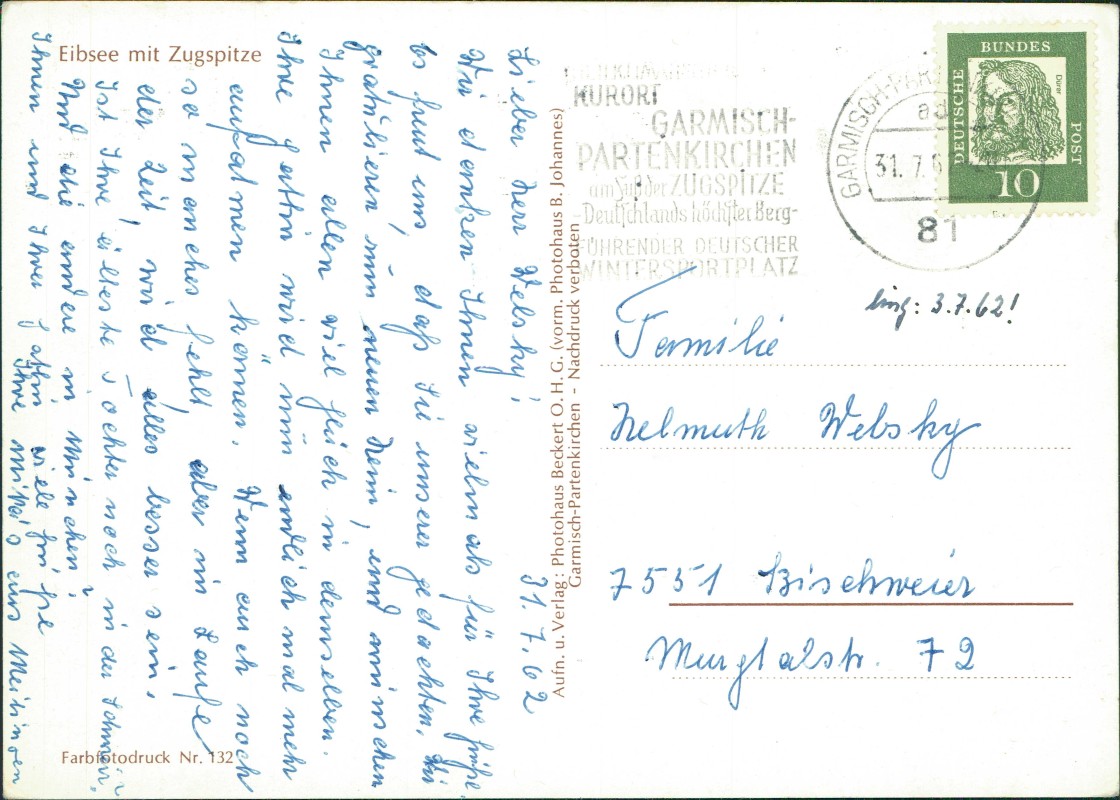 Eibsee mit Zugspitze
31.7.62
Lieber Herr Welsky!
Wir danken Ihnen vielmals für Ihre Grüße.
Es freut uns, daß Sie unserer gedachten. Wir
gratulieren zum neuen Heim, und wünschen
Ihnen allen viel Glück in demselben.
Ihre Gattin wird nun endlich mal mehr
aufatmen können. Wenn auch noch
so manches fehlt, aber im Laufe
der Zeit, wird alles besser sein.
Ist Ihre älteste Tochter noch in der Schweiz?
Und die andere in München?
Ihnen und Ihrer Gattin viele Grüße
Ihre aus
Farbfotodruck Nr. 132
Aufn. u. Verlag: Photohaus Beckert O. H. G. (vorm. Photohaus B. Johannes)
Garmisch-Partenkirchen - Nachdruck verboten
KURORT
GARMISCH-
PARTENKIRCHEN
am Fuß der ZUGSPITZE
-Deutschlands höchster Berg-
FÜHRENDER DEUTSCHER
WINTERSPORTPLATZ
GARMISCH-PARTENKIRCHEN
31.7.6
81
DEUTSCHE BUNDES POST
Dürer
10
Eing: 3.7.62!
Familie
Helmuth Websky
7551 Bischweier
Murgtalstr. 72